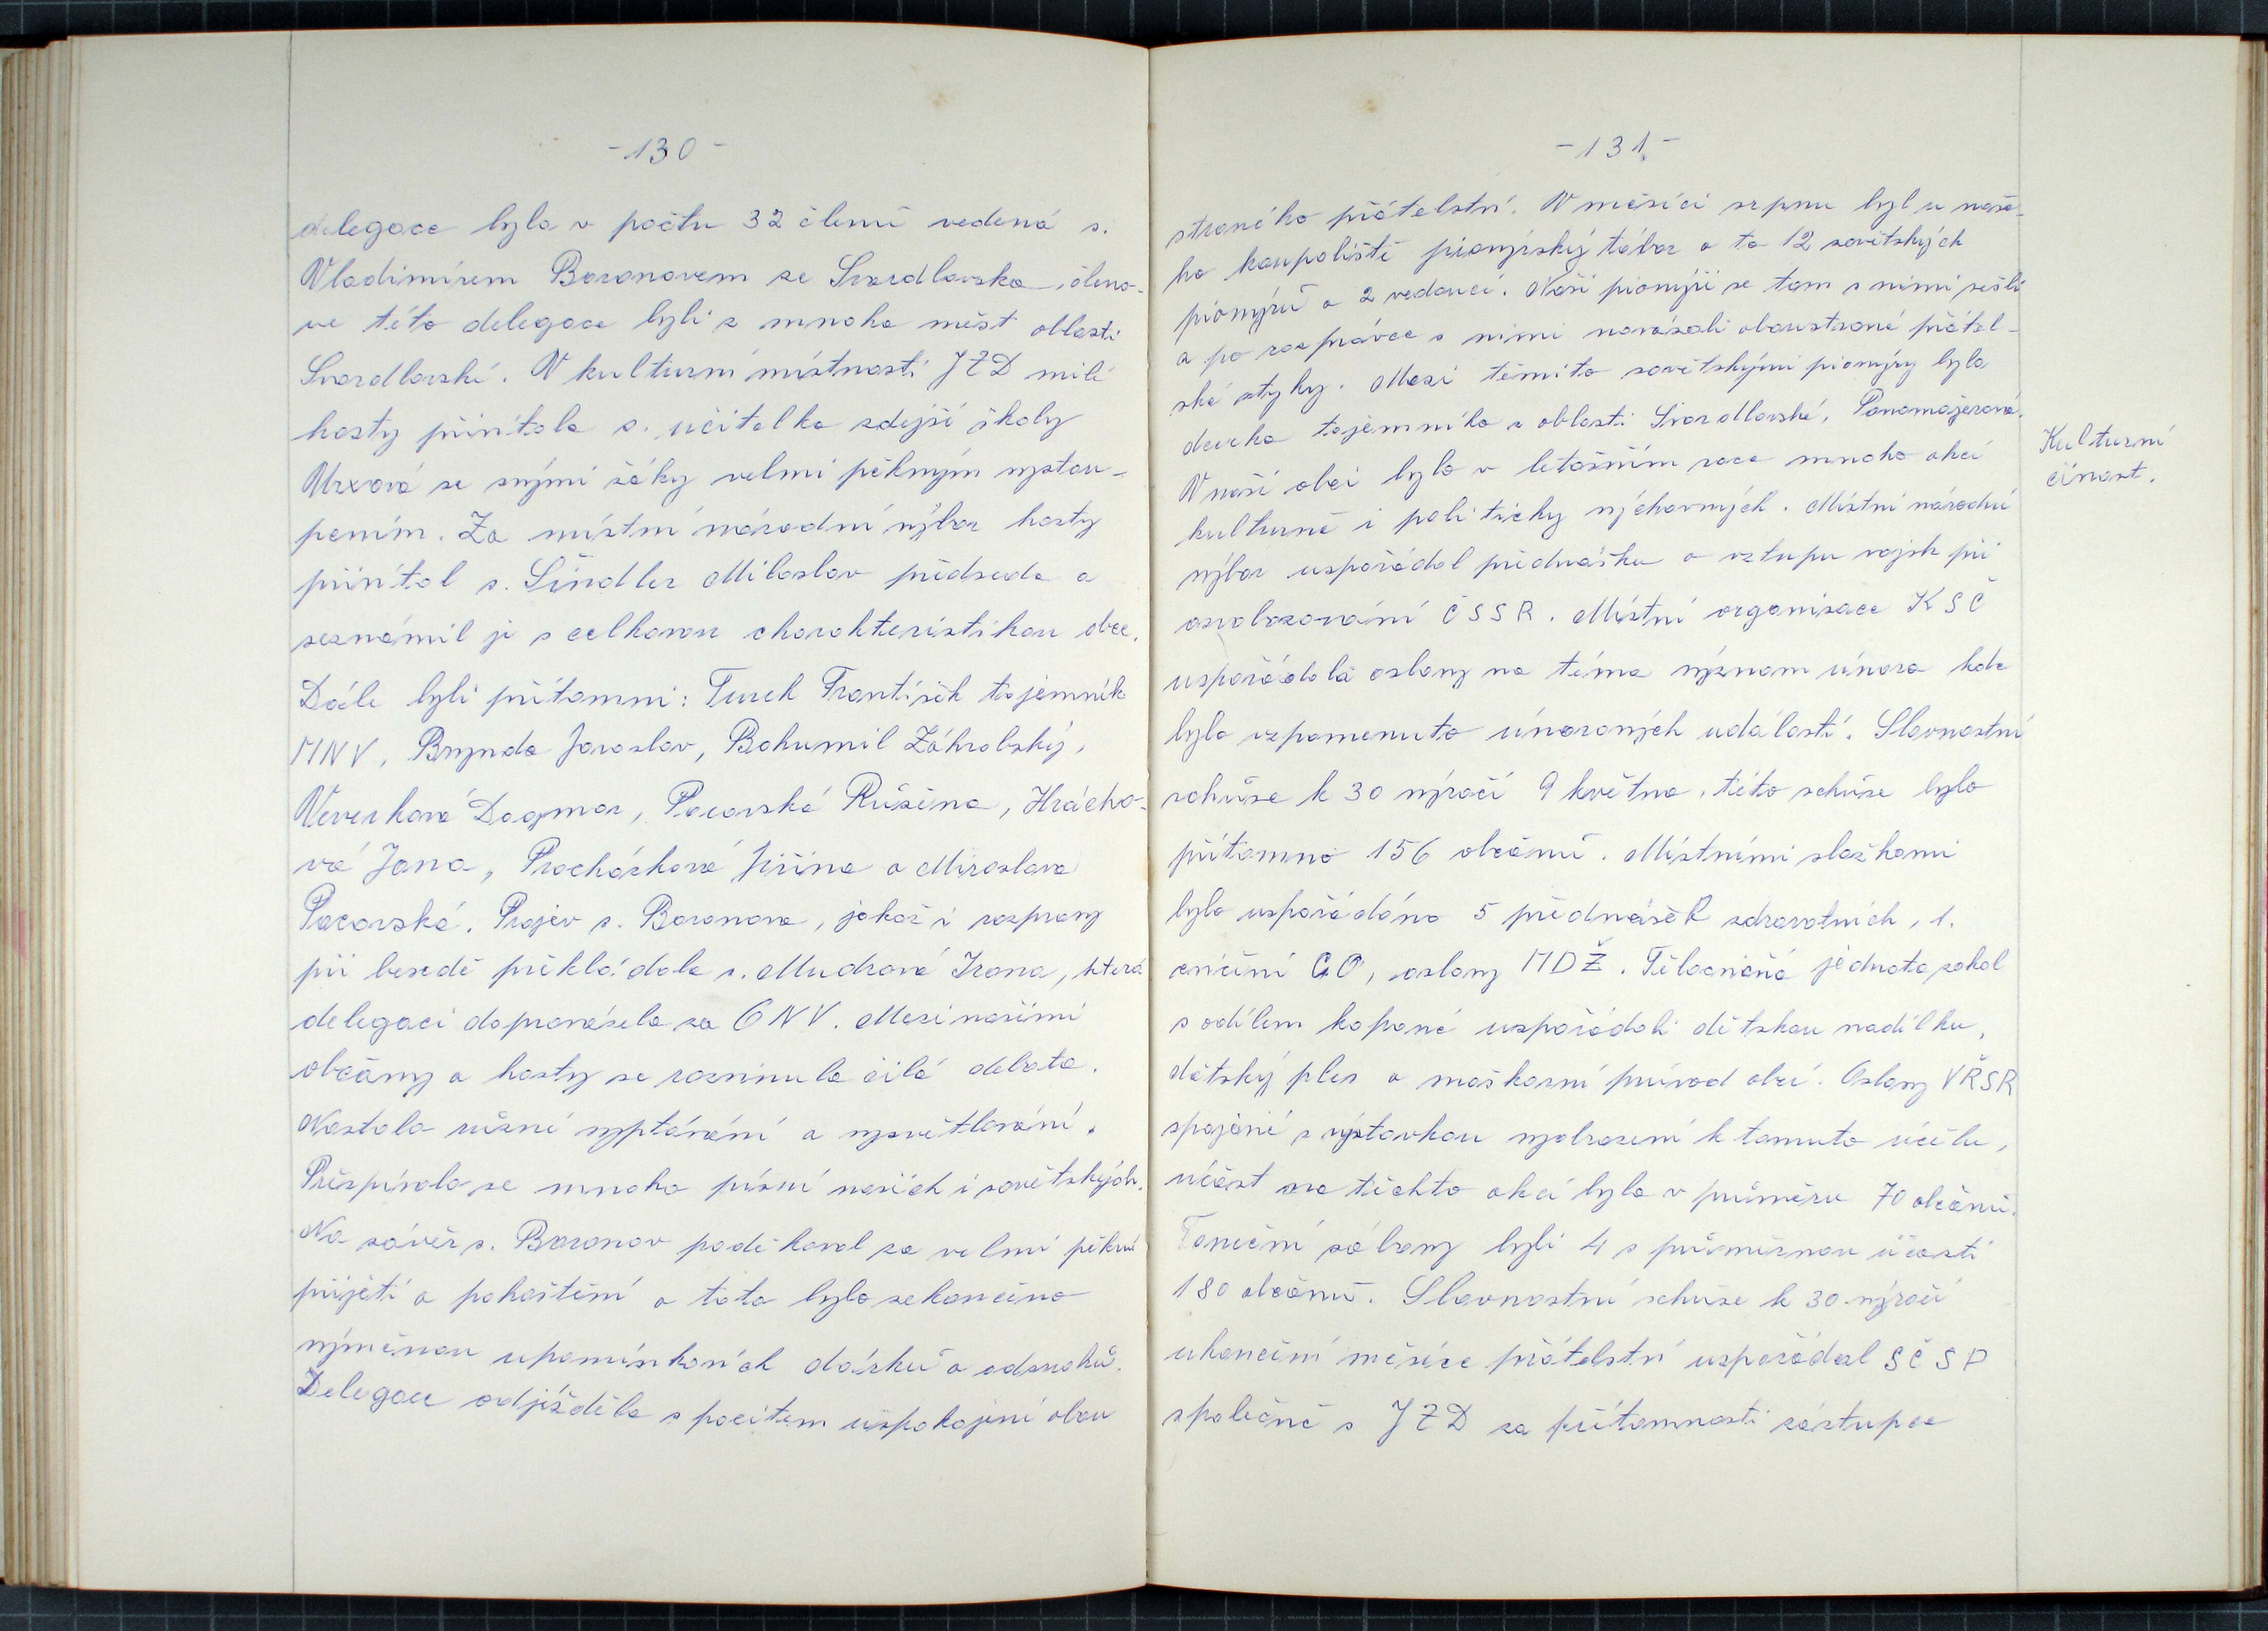 -130-
delegace byla v počtu 32 členů vedená s.
Vladimírem Baranovem ze Sverdlovska, členo-
vé této delegace byli z mnoha měst oblasti
Sverdlovské. V kulturní místnosti JZD milé
hosty přivítala s. učitelka zdejší školy
se svými žáky velmi pěkným vystou-
pením. Za místní národní výbor hosty
přivítal s. Šindler Miloslav předseda a
seznámil je s celkovou charakteristikou obce.
Dále byli přítomni: Turek František tajemník
MNV, Brynda Jaroslav, Bohumil Záhrobský,
Veverková Dagmar, Pacovská Růžena, Hrácho-
vá Jana, Procházková Jiřina a Miroslava
Pacovská. Projev s. Baranova, jakož i rozpravy
při besedě překládala s. Mudrová Irena, která
delegaci doprovázela za ONV. Mezi našimi
občany a hosty se rozvinula čilá debata.
Nastalo různé vyptávání a vysvětlování.
Přezpívalo se mnoho písní našich i sovětských.
Na závěr s. Baranov poděkoval za velmi pěkné
přijetí a pohoštění a toto bylo zakončeno
výměnou upomínkových dárků a odznaků.
Delegace odjížděla s pocitem uspokojení obou
-131.-
straného přátelství. V měsíci srpnu byl u naše-
ho koupaliště pionýrský tábor a to 12 sovětských
pionýrů a 2 vedoucí. Naši pionýři se tam s nimi sešli
a po rozprávce s nimi navázali oboustrané přátel-
ské styky. Mezi těmito sovětskými pionýry byla
dcerka tajemníka z oblasti Sverdlovské, Ponomajerová.
Kulturní
činost.
V naší obci bylo v letošním roce mnoho akcí
kulturně i politicky výchovných. Místní národní
výbor uspořádal přednášku o vstupu vojsk při
osvobozování ČSSR. Místní organisace KSČ
uspořádala oslavy na téma význam února kde
bylo vzpomenuto únorových událostí. Slavnostní
schůze k 30 výročí 9 května, této schůze bylo
přítomno 156 občanů. Místními složkami
bylo uspořádáno 5 přednášek zdravotních, 1.
cvičení CO, oslavy MDŽ. Tělocvičná jednota sokol
s odílem kopané uspořádali dětskou nadílku,
dětský ples a maškarní průvod obcí. Oslavy VŘSR
spojené s výstavkou vyobrazení k tomuto účelu,
účast na těchto akcí byla v průměru 70 občanů.
Taneční zábavy byli 4 s průměrnou účastí
180 občanů. Slavnostní schůze k 30 výročí
ukončení měsíce přátelství uspořádal SČSP
společně s JZD za přítomnosti zástupce